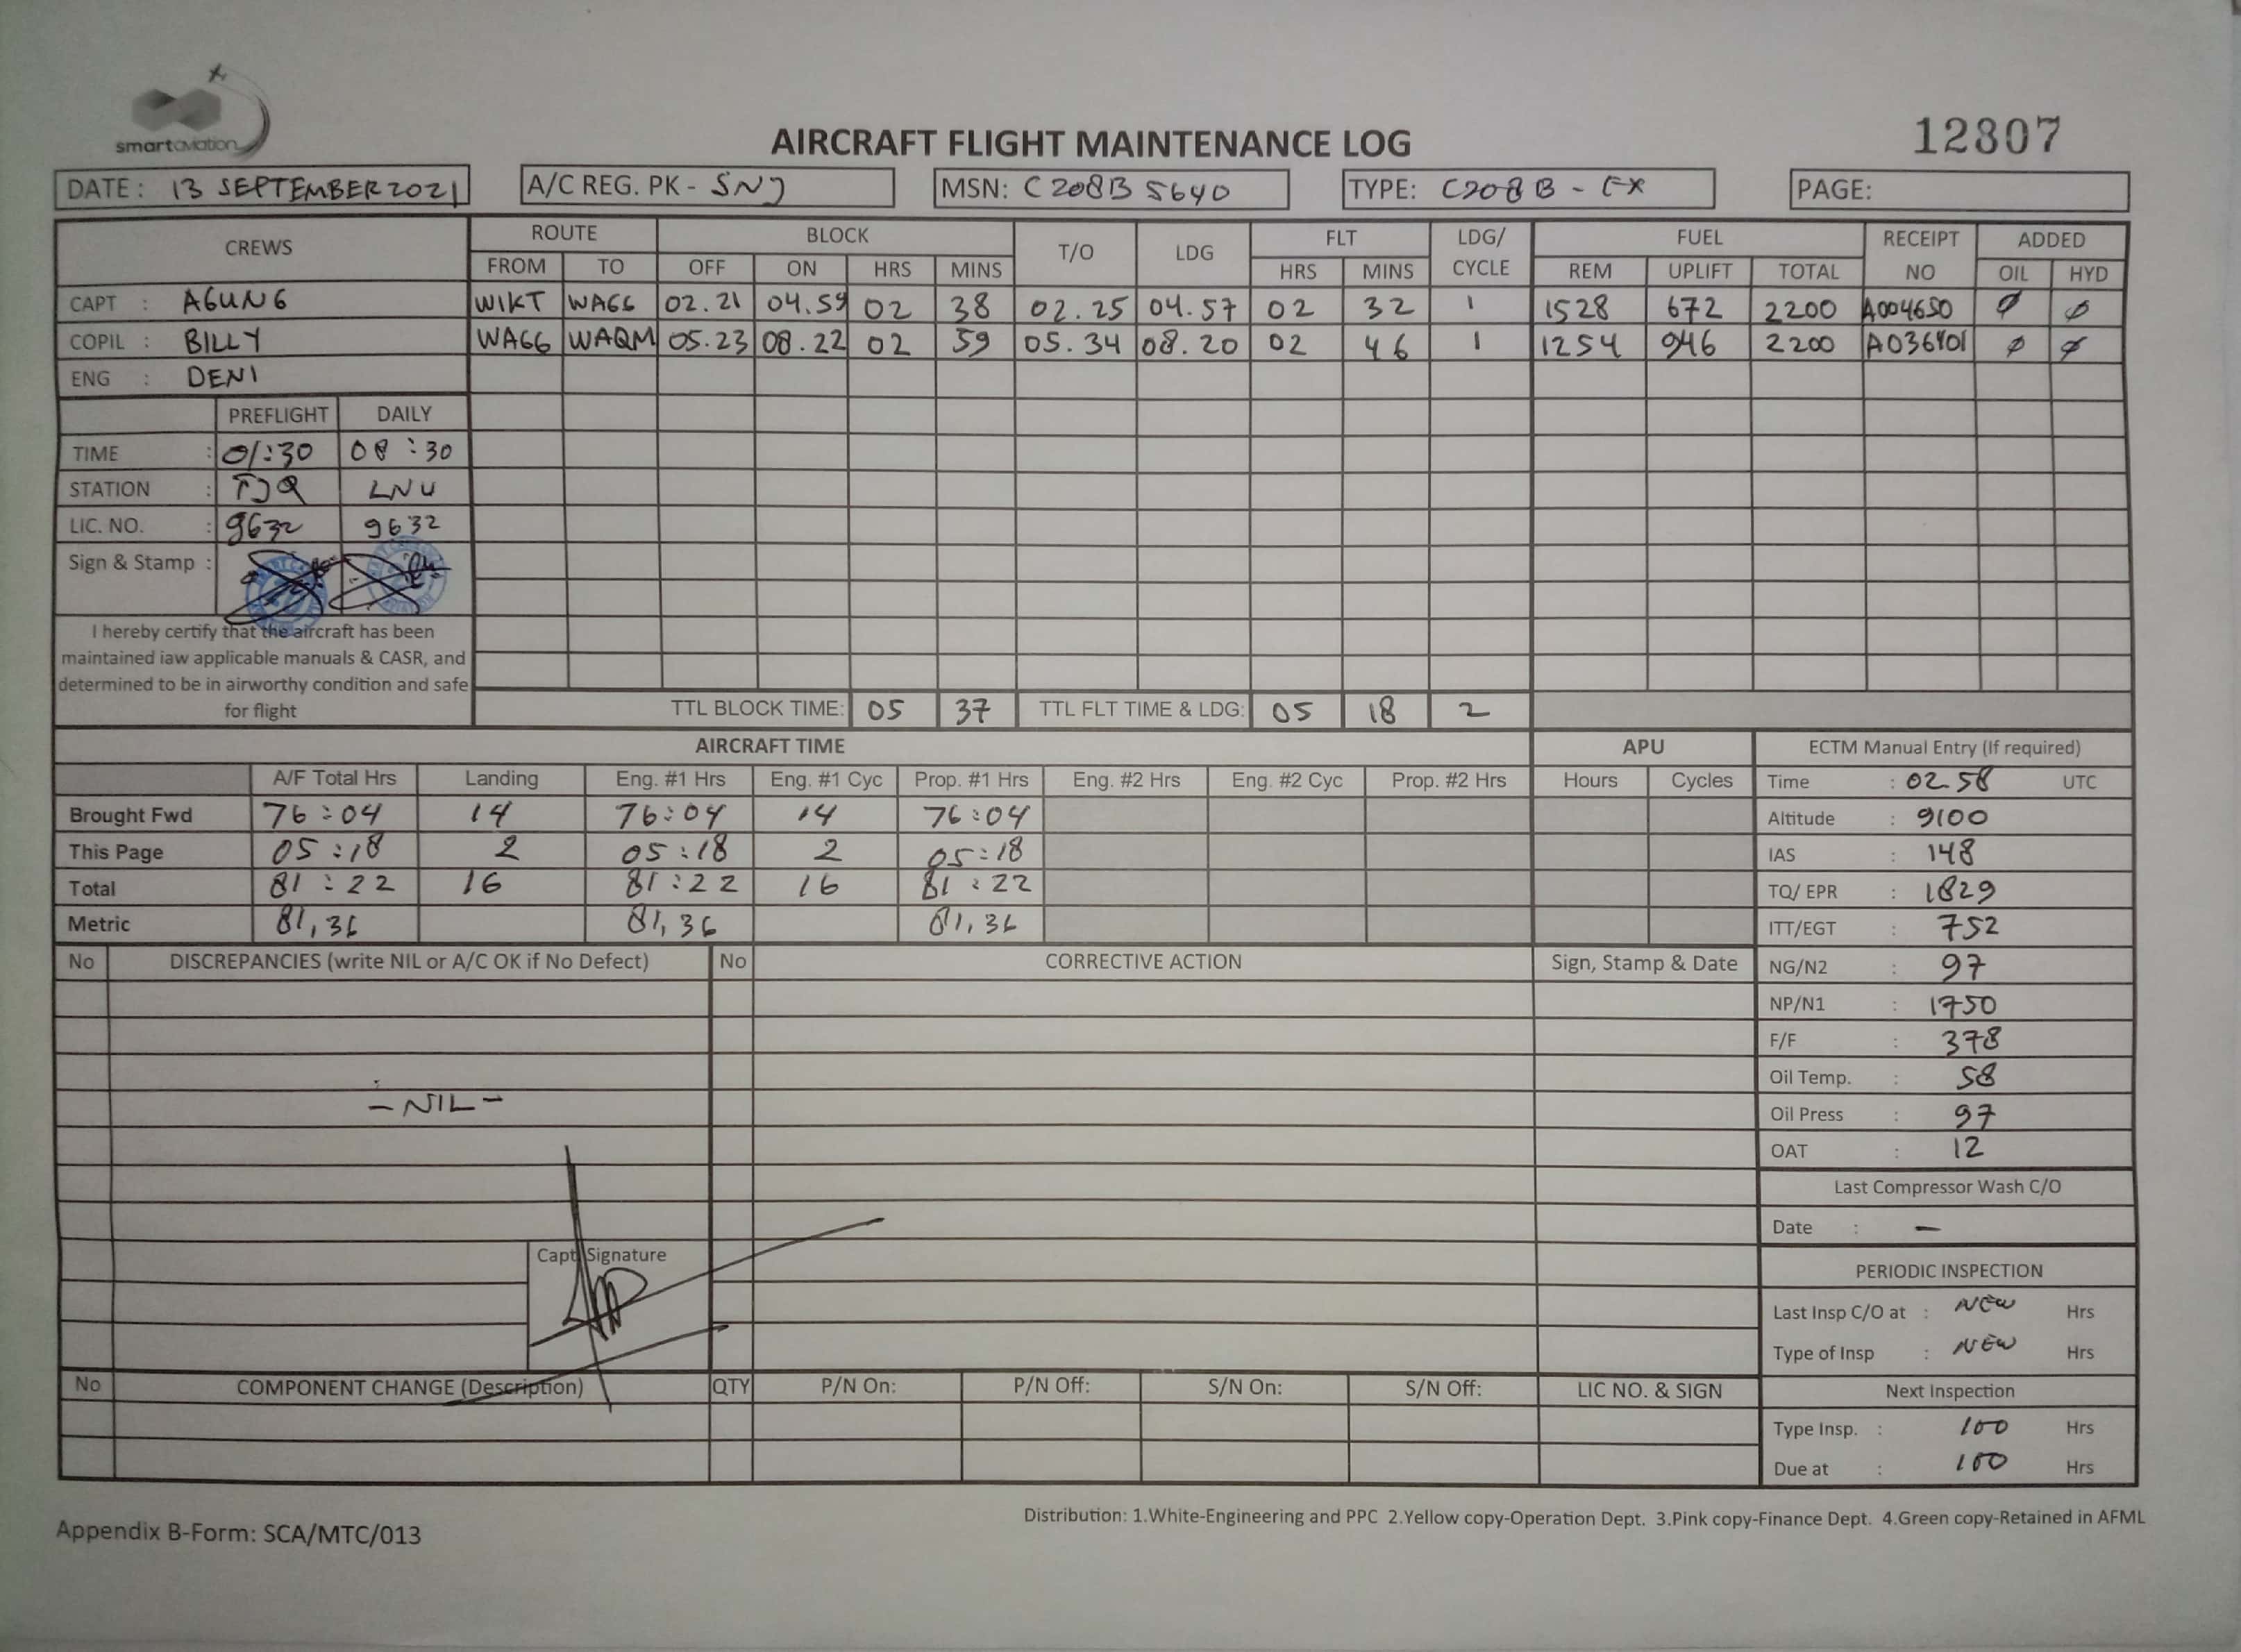 smartaviation
AIRCRAFT FLIGHT MAINTENANCE LOG
12307
DATE: 13 SEPTEMBER 2021 A/C REG. PK - SNJ MSN: C208B 5640 TYPE: C208B - EX PAGE:
CREWS ROUTE BLOCK T/O LDG FLT LDG/ CYCLE FUEL RECEIPT NO ADDED
FROM TO OFF ON HRS MINS HRS MINS REM UPLIFT TOTAL OIL HYD
CAPT : AGUNG WIKT WAGG 02.21 04.59 02 38 02.25 04.57 02 32 1 1528 672 2200 A004650 Ø Ø
COPIL : BILLY WAGG WAQM 05.23 08.22 02 59 05.34 08.20 02 46 1 1254 946 2200 A036401 Ø Ø
ENG : DENI
PREFLIGHT DAILY
TIME : 01:30 08:30
STATION : TJQ LNU
LIC. NO. : 9632 9632
Sign & Stamp :
I hereby certify that the aircraft has been
maintained iaw applicable manuals & CASR, and
determined to be in airworthy condition and safe
for flight
TTL BLOCK TIME: 05 37 TTL FLT TIME & LDG: 05 18 2
AIRCRAFT TIME APU ECTM Manual Entry (If required)
A/F Total Hrs Landing Eng. #1 Hrs Eng. #1 Cyc Prop. #1 Hrs Eng. #2 Hrs Eng. #2 Cyc Prop. #2 Hrs Hours Cycles Time : 02.58 UTC
Brought Fwd 76:04 14 76:04 14 76:04 Altitude : 9100
This Page 05:18 2 05:18 2 05:18 IAS : 148
Total 81:22 16 81:22 16 81:22 TQ/ EPR : 1829
Metric 81,36 81,36 81,36 ITT/EGT : 752
No DISCREPANCIES (write NIL or A/C OK if No Defect) No CORRECTIVE ACTION Sign, Stamp & Date NG/N2 : 97
NP/N1 : 1750
F/F : 378
Oil Temp. : 58
- NIL -
Oil Press : 97
OAT : 12
Last Compressor Wash C/O
Date : —
Capt Signature
PERIODIC INSPECTION
Last Insp C/O at : NEW Hrs
Type of Insp : NEW Hrs
No COMPONENT CHANGE (Description) QTY P/N On: P/N Off: S/N On: S/N Off: LIC NO. & SIGN Next Inspection
Type Insp. : 100 Hrs
Due at : 100 Hrs
Appendix B-Form: SCA/MTC/013
Distribution: 1.White-Engineering and PPC 2.Yellow copy-Operation Dept. 3.Pink copy-Finance Dept. 4.Green copy-Retained in AFML